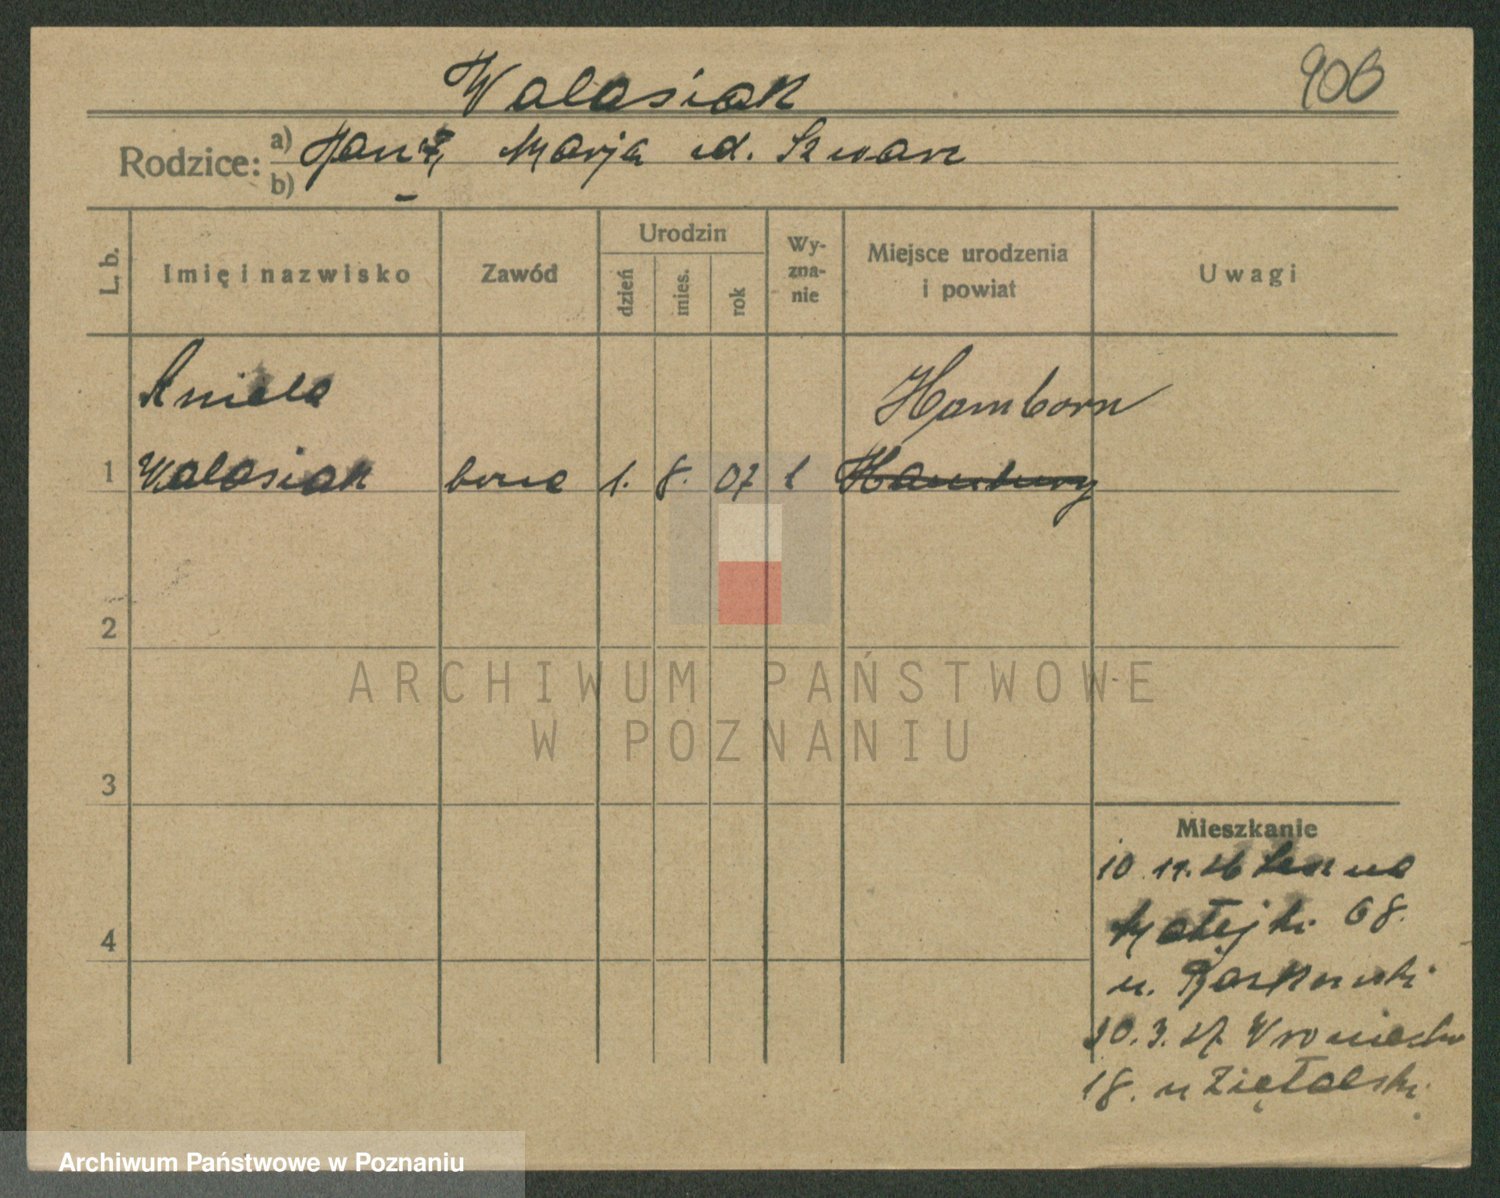 Walasiak
906
Rodzice: a) Jan ż, Marja ud. Szwarc
b) –
L. b.
Imię i nazwisko
Zawód
Urodzin
dzień
mies.
rok
Wy-
zna-
nie
Miejsce urodzenia
i powiat
Uwagi
Aniela
Hamborn
1 Walasiak bona 1. 8. 07 k Hamburg
2
3
4
ARCHIWUM PAŃSTWOWE
W POZNANIU
Mieszkanie
10 11. 26
Matejki 68.
u.
30. 3. 27 Wroniecka
18. u Ziętalski
Archiwum Państwowe w Poznaniu